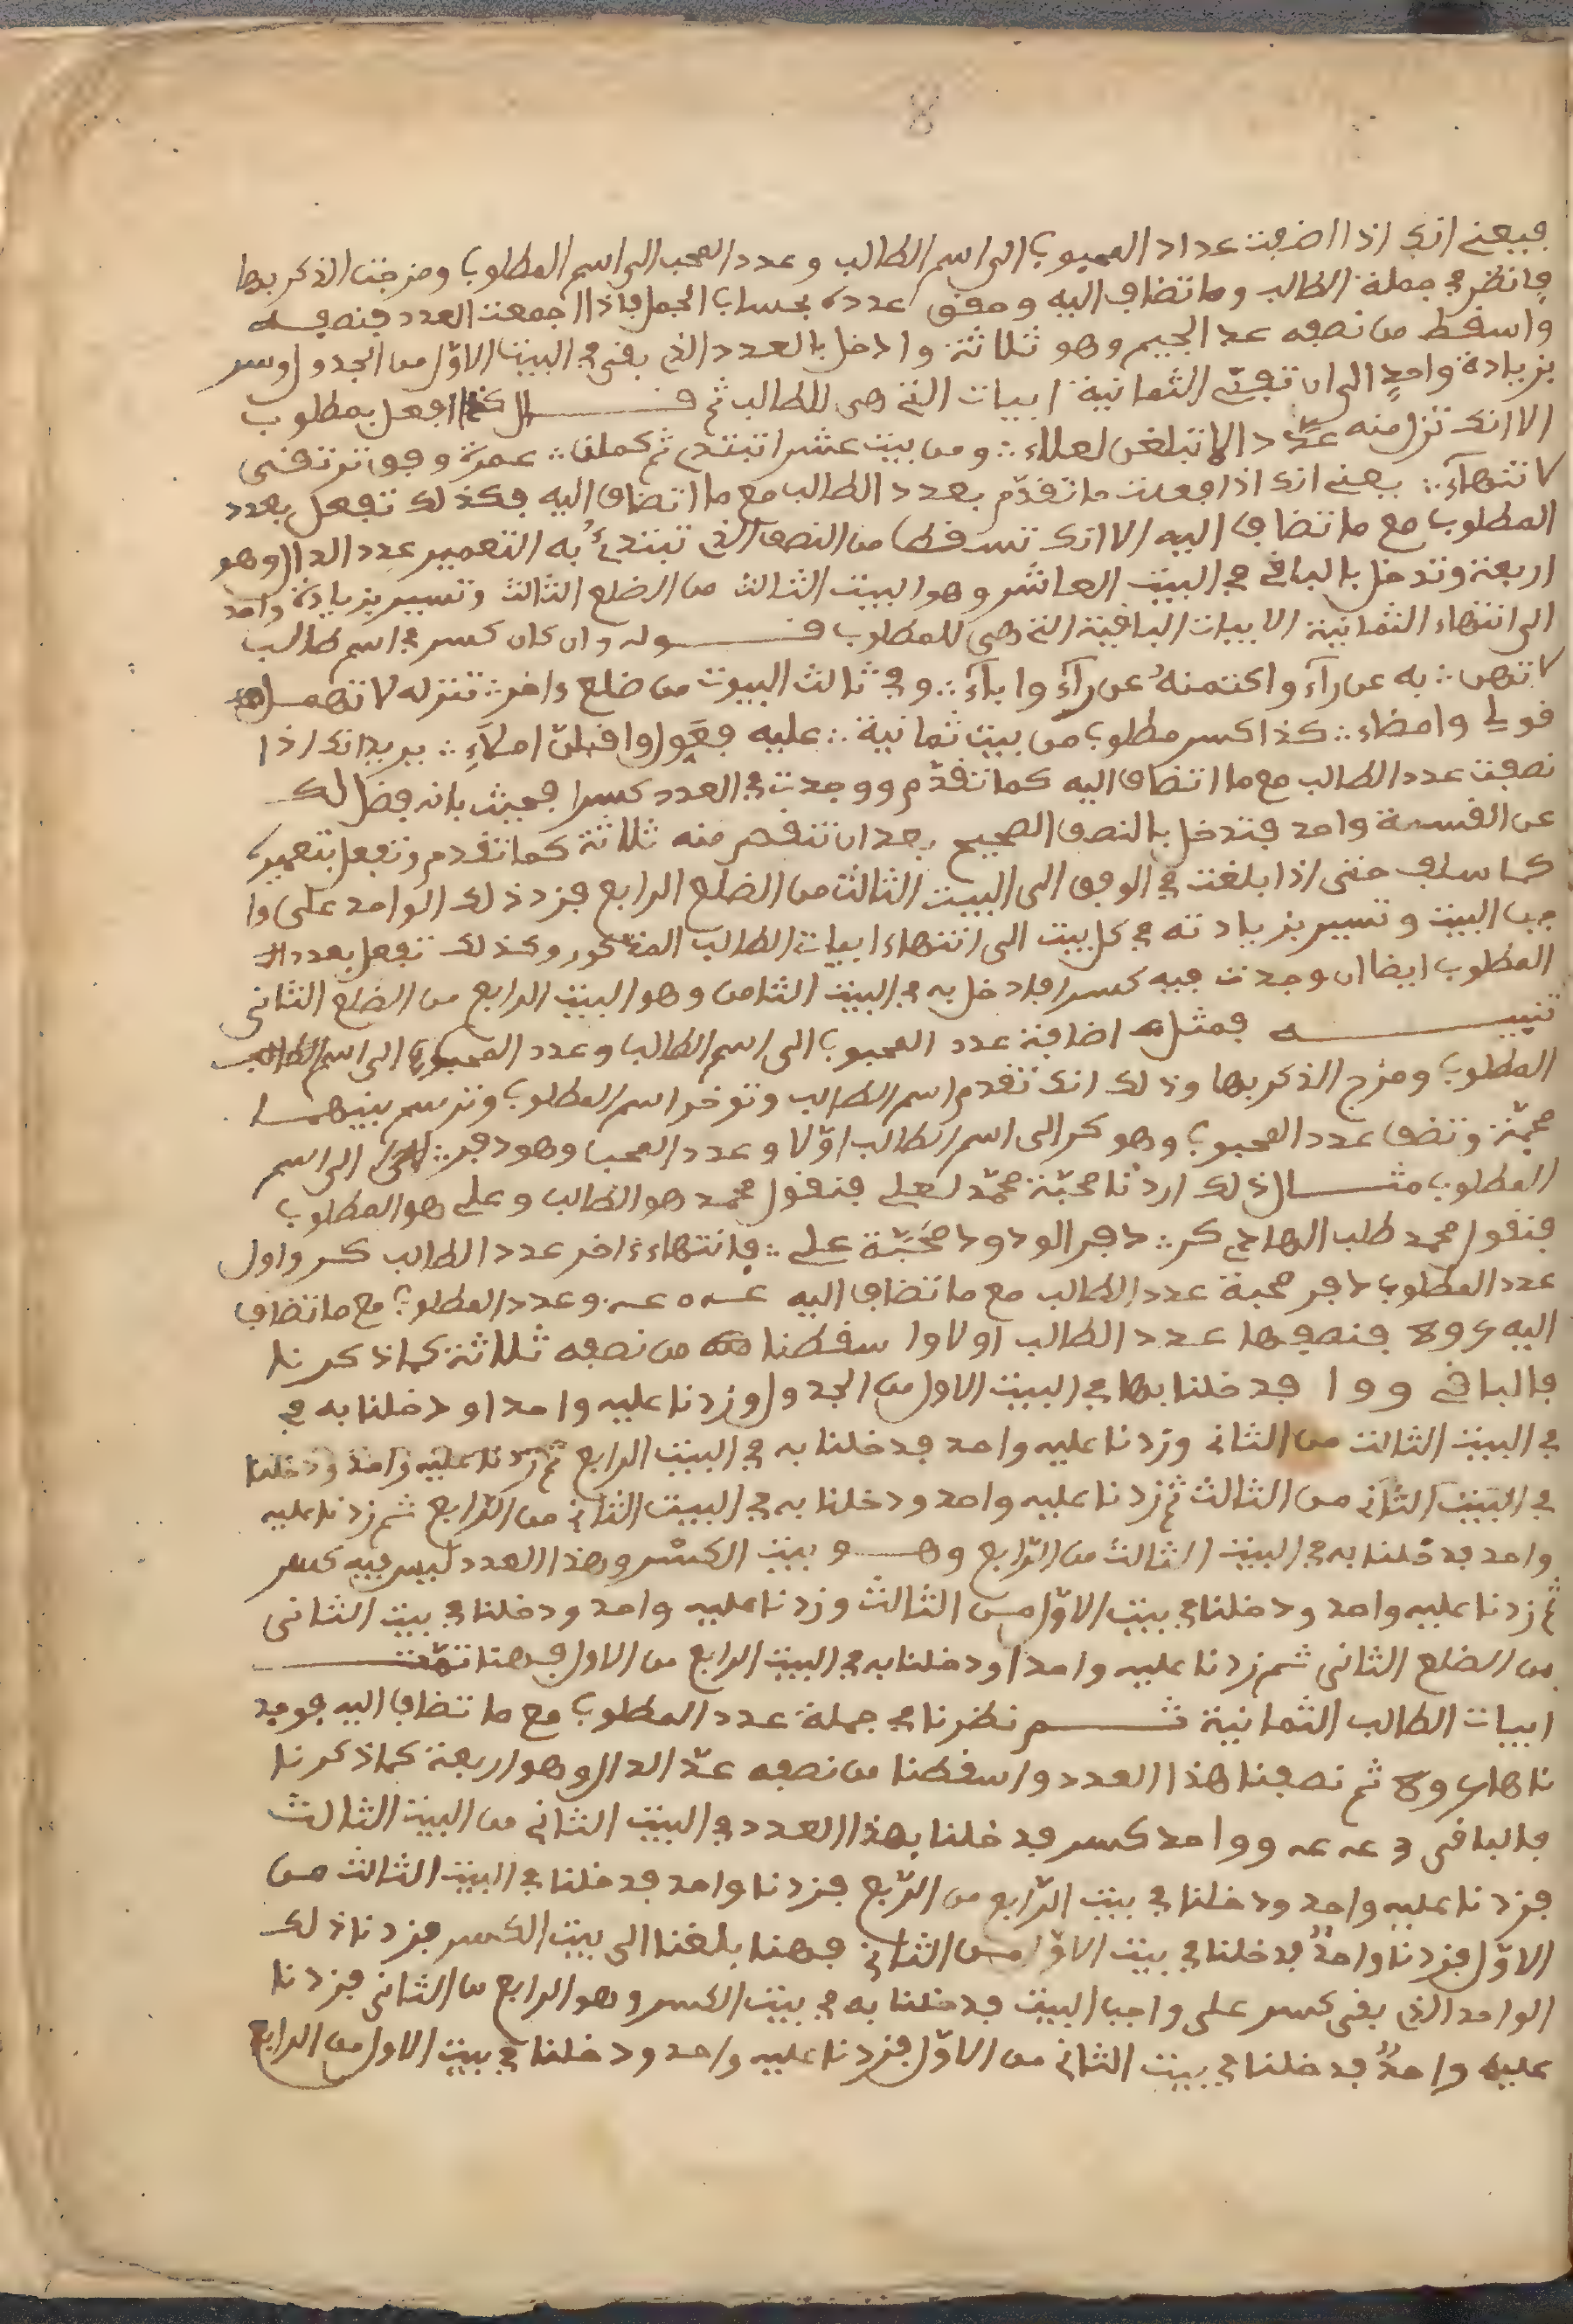 8
فيعني انك اذا اضفت عداد المحبوب الى اسم الطالب وعدد المحب الى اسم المطلوب ومزجت الذكر بها
فانظر في جملة الطالب وما تضاف اليه وحقق عدده بحساب الجمل فاذا جمعت العدد فنصفه
واسقط من نصفه عد الجيم وهو ثلاثة وادخل بالعدد الذي بقي في البيت الاوّل من الجدول وسر
بزيادة واحدٍ الى ان تفتى الثمانية ابيات التي هي للطالب ثم قال كذا افعل بمطلوب
الا انك تزل منه عدّ دالا تبلغن لعلاء ∴ ومن بيت عشر ابتدى ثم كملن ∴ عمرة وفق ترتقى
لانتهآء ∴ يعني انك اذا فعلت ما تقدّم بعدد الطالب مع ما اتضاف اليه فكذلك تفعل بعدد
المطلوب مع ما تضاف اليه الا انك تسقط من النصف الذي تبتدئُ به التعمير عدد الدال وهو
اربعة وتدخل بالباقي في البيت العاشر وهو البيت الثالث من الضلع الثالث وتسير بزيادة واحد
الى انتهاء الثمانية الابيات الباقية التي هي للمطلوب قوله وان كان كسر في اسم طالب
لا تهن ∴ به عن رآء واكتمنهُ عن رآءٍ وابآء ∴ وفي ثالث البيوت من ضلع ءاخر ∴ تنزله لا تهمل
قولي وامضاء ∴ كذا كسر مطلوب من بيت ثمانية ∴ عليه فعَوِّل واقبلنّ املآءِ ∴ يريد انك اذا
نصفت عدد الطالب مع ما اتضاف اليه كما تقدّم ووجدت في العدد كسرا فحيث بانه فضل لك
عن القسمة واحد فتدخل بالنصف الصحيح بعد ان تنقص منه ثلاثة كما تقدم وتفعل بتعميره
كما سلف حتى اذا بلغت في الوفق الى البيت الثالث من الضلع الرابع فزد ذلك الواحد على وا
جب البيت وتسير بزيادته في كل بيت الى انتهاء ابيات الطالب المذكور وكذلك تفعل بعدد
المطلوب ايضا ان وجدت فيه كسرا فادخل به في البيت الثامن وهو البيت الرابع من الضلع الثاني
تنبيه فمثل اضافة عدد المحبوب الى اسم الطالب وعدد المحبوب الى اسم الطالب
المطلوب ومزج الذكر بها وذلك انك تقدم اسم الطالب وتوخر اسم المطلوب وترسم بينهما
محبّة وتضف عدد المحبوب وهو كر الى اسم الطالب اوّلا وعدد المحب وهو دفر ∴ الى اسم
المطلوب مثال ذلك اردنا محبّة محمّد لعلي فنقول محمد هو الطالب وعلي هو المطلوب
فنقول محمد طلب الهادي كر ∴ دفر الودود محَبّة علي ∴ فانتهاء ءاخر عدد الطالب كر واول
عدد المطلوب دفر محبة عدد الطالب مع ما تضاف اليه وعدد المطلوب مع ما تضاف
اليه فنصفها عدد الطالب اولا واسقطنا من نصفه ثلاثة كما ذكرنا
فالباقي فدخلنا بها في البيت الاول من الجدول وزدنا عليه واحدا ودخلنا به في
في البيت الثالث من الثاني وزدنا عليه واحد فدخلنا به في البيت الرابع ثم زدنا عليه واحد ودخلنا
في البيت الثاني من الثالث ثم زدنا عليه واحد ودخلنا به في البيت الثاني من الرّابع ثم زدنا عليه
واحد فدخلنا به في البيت الثالث من الرّابع وهو بيت الكسر وهذا العدد ليس فيه كسر
ثم زدنا عليه واحد ودخلنا في بيت الاوّل من الثالث وزدنا عليه واحد ودخلنا في بيت الثاني
من الضلع الثاني ثم زدنا عليه واحدا ودخلنا به في البيت الرابع من الاول فهنا تمّت
ابيات الطالب الثمانية ثم نظرنا في جملة عدد المطلوب مع ما تضاف اليه فوجد
ناها ثم نصفنا هذا العدد واسقطنا من نصفه عدّ الدال وهو اربعة كما ذكرنا
فالباقي وواحد كسر فدخلنا بهذا العدد في البيت الثاني من البيت الثالث
فزدنا عليه واحد ودخلنا في بيت الرّابع من الرّبع فزدنا واحد فدخلنا في البيت الثالث من
الاوّل فزدنا واحدٌ فدخلنا في بيت الاوّل من الثاني فهنا بلغنا الى بيت الكسر فزدنا ذلك
الواحد الذي بقى كسر على واجب البيت فدخلنا به في بيت الكسر وهو الرابع من الثاني فزدنا
عليه واحدٌ فدخلنا في بيت الثاني من الاوّل فزدنا عليه واحد ودخلنا في بيت الاول من الرابع